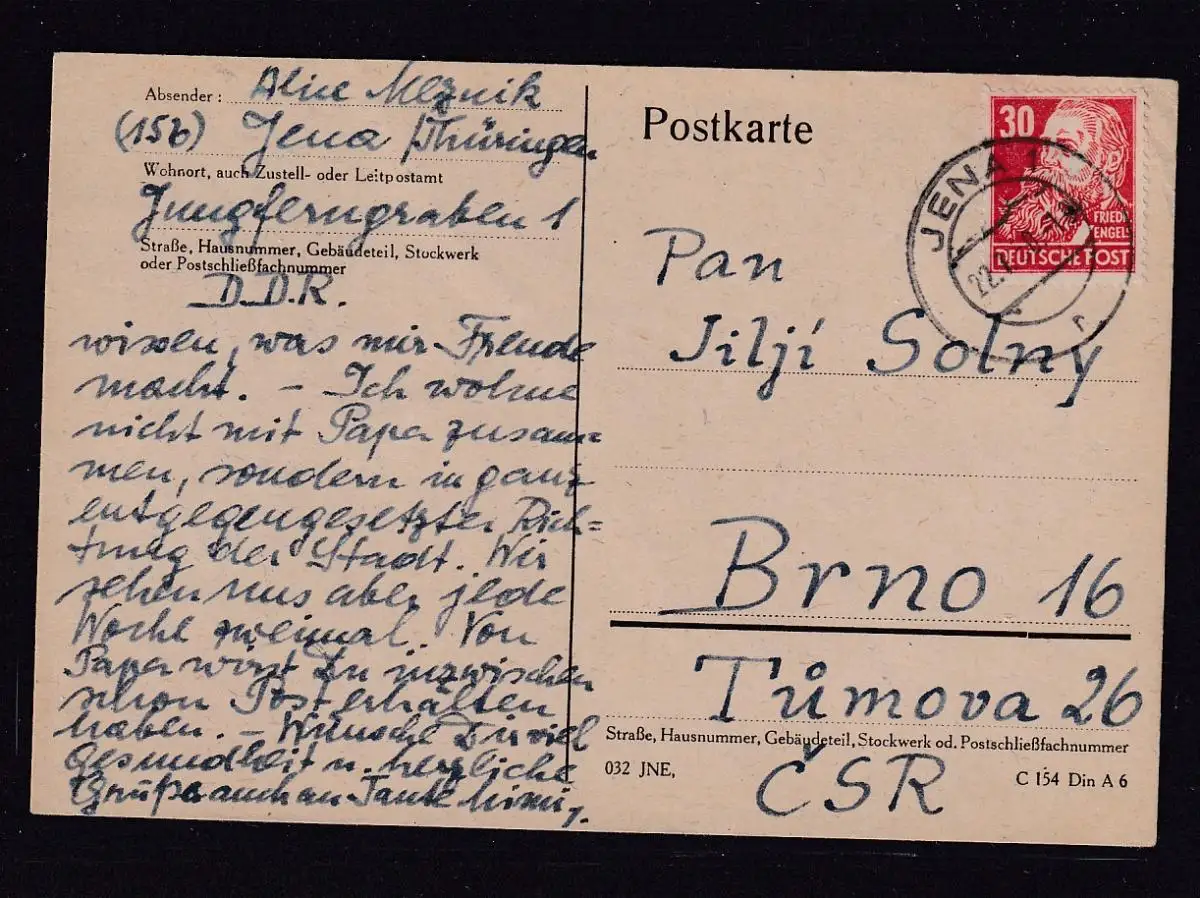 Absender: Alice Meznik
(15b) Jena /Thüringen
Wohnort, auch Zustell- oder Leitpostamt
Jungferngraben 1
Straße, Hausnummer, Gebäudeteil, Stockwerk
oder Postschließfachnummer
D.D.R.
wissen, was mir Freude
macht. – Ich wohne
nicht mit Papa zusam=
men, sondern in ganz
entgegengesetzter Rich=
tung der Stadt. Wir
sehen uns aber jede
Woche zweimal. Von
Papa wirst Du inzwischen
schon Post erhalten
haben. – Wünsche Dir viel
Gesundheit u. herzliche
Grüße auch an Tante Mimi,
Postkarte
30
FRIEDR.
ENGELS
DEUTSCHE POST
JENA
22.
Pan
Jiljí Solny
Brno 16
Tůmova 26
Straße, Hausnummer, Gebäudeteil, Stockwerk od. Postschließfachnummer
ČSR
032 JNE,
C 154 Din A 6